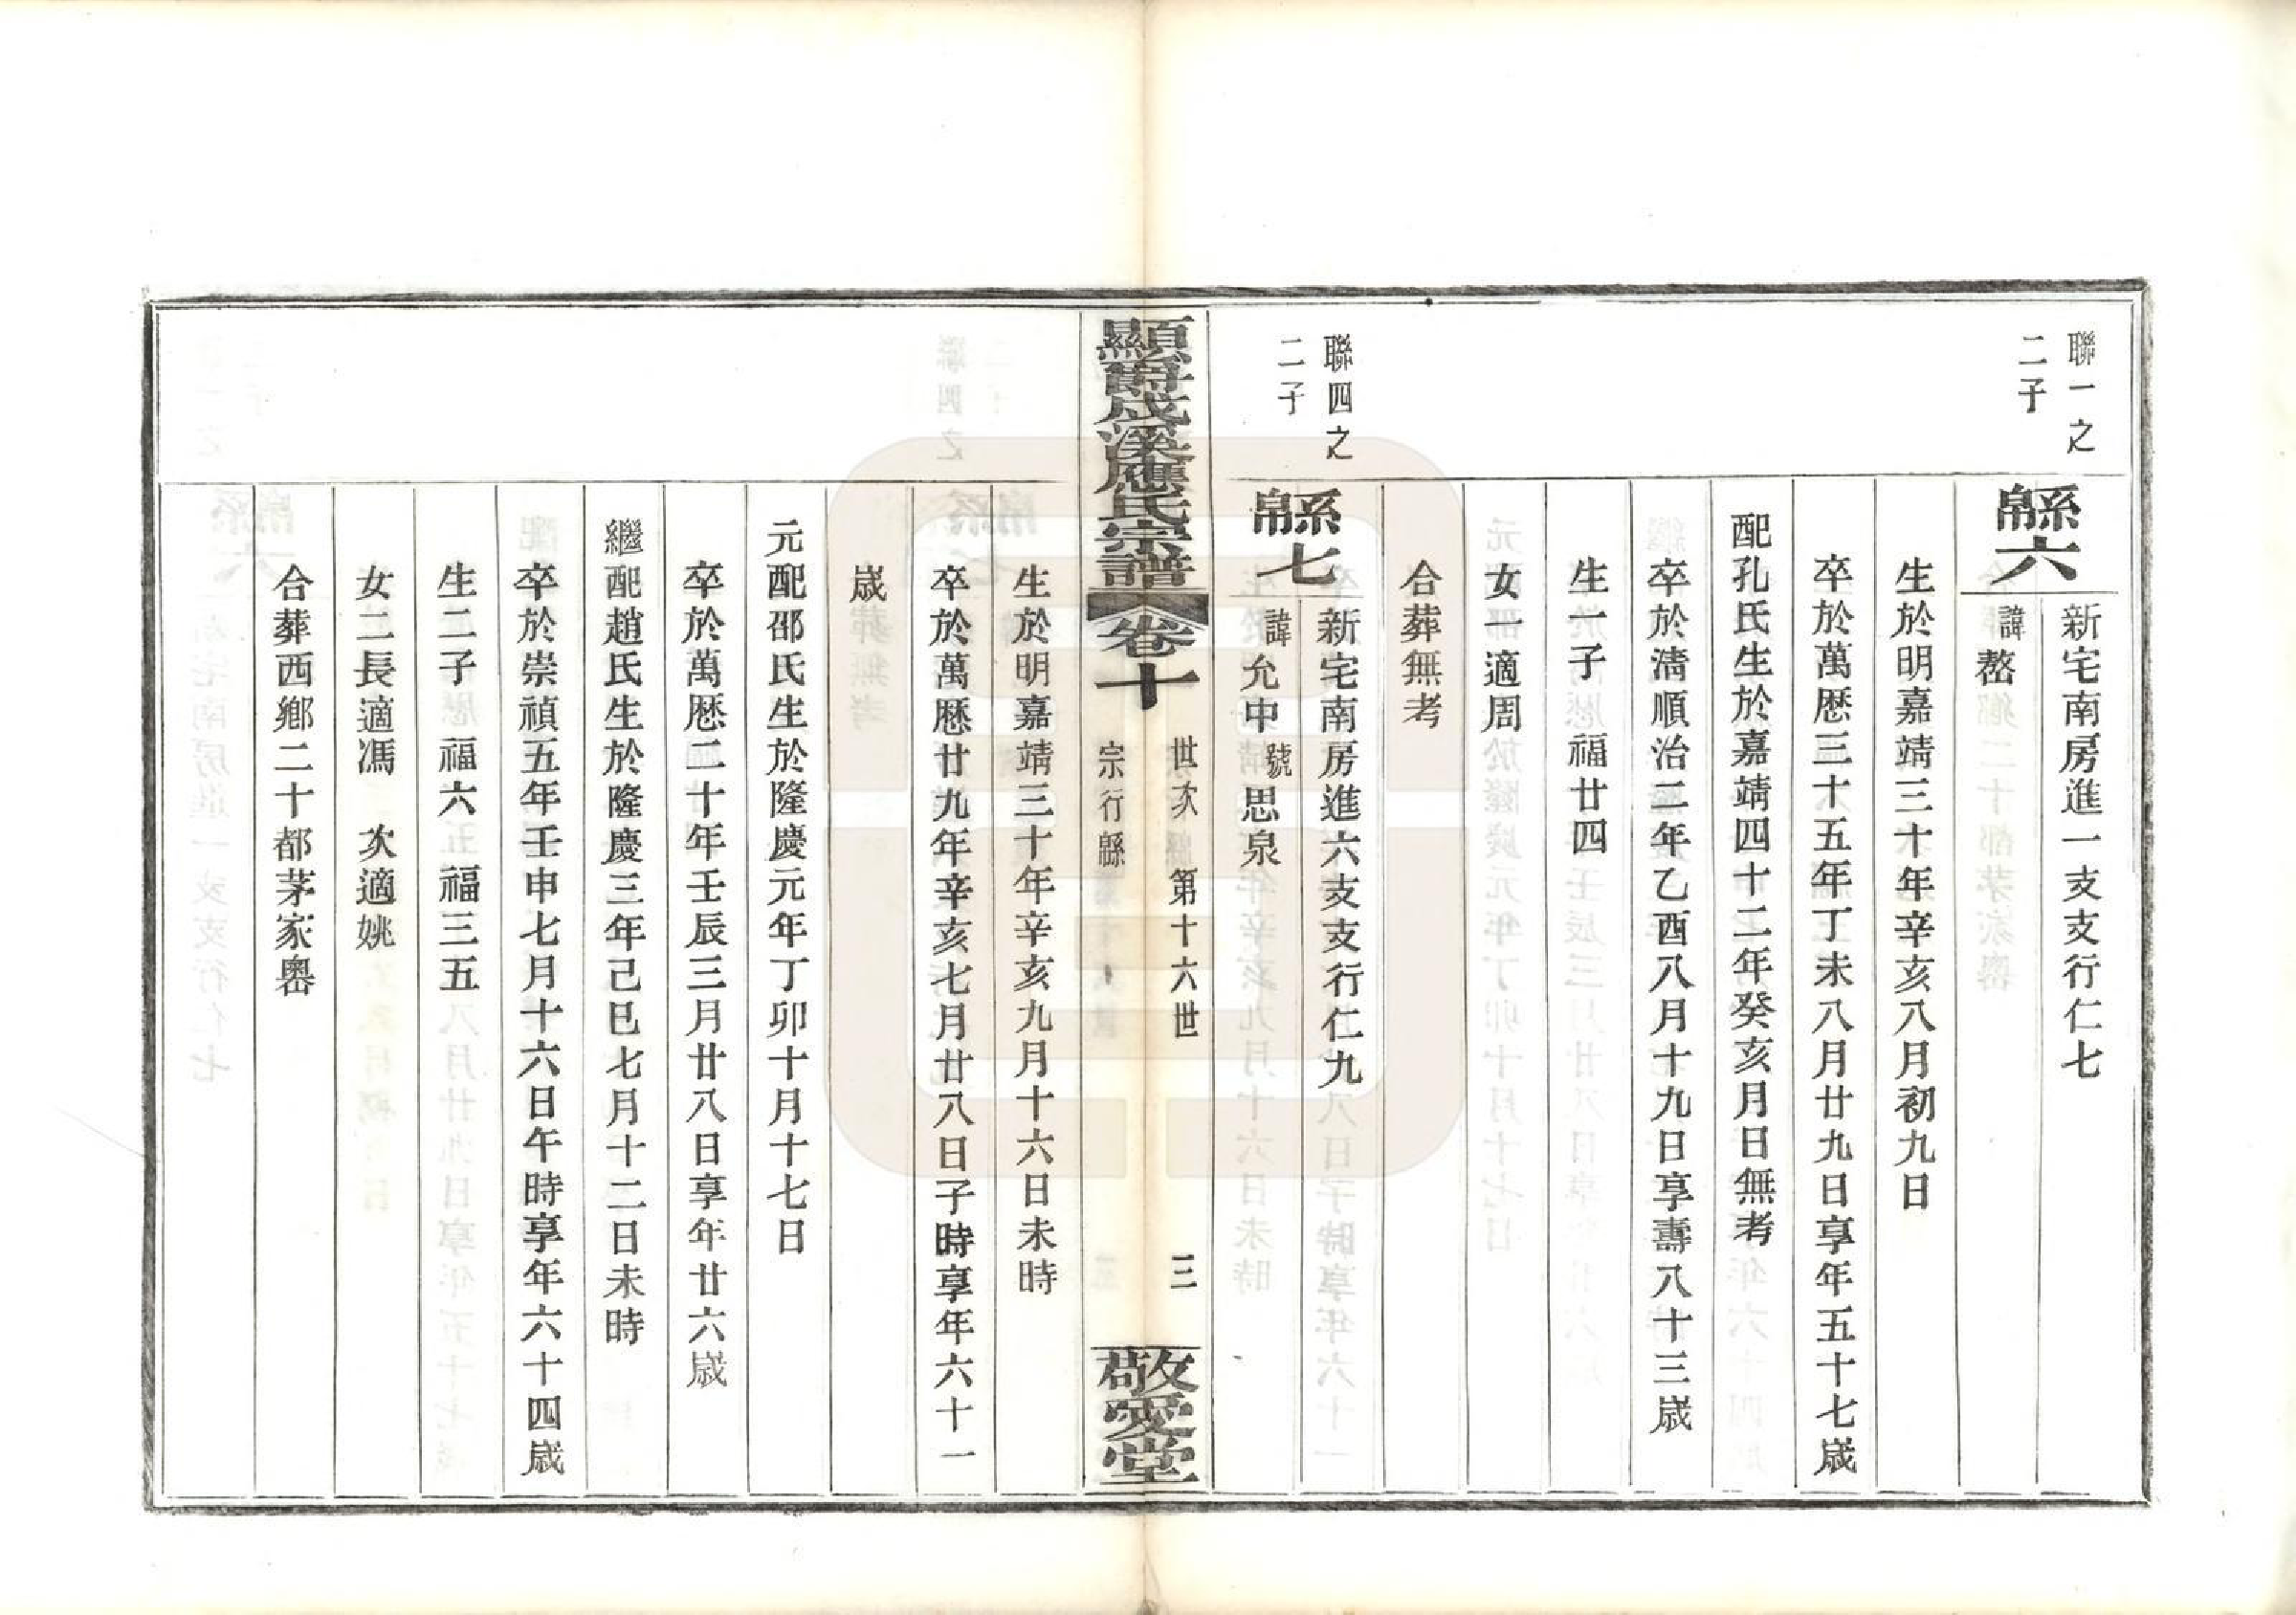 聯一之
二子
緜六
新宅南房進一支支行仁七
諱嶅
生於明嘉靖三十年辛亥八月初九日
卒於萬歷三十五年丁未八月廿九日享年五十七歲
配孔氏生於嘉靖四十二年癸亥月日無考
卒於清順治二年乙酉八月十九日享壽八十三歲
生一子 福廿四
女一適周
合葬無考
聯四之
二子
緜七
新宅南房進六支支行仁九
諱允中號思泉
顯爵成溪應氏宗譜
卷十
世次 第十六世
宗行緜
三
敬愛堂
生於明嘉靖三十年辛亥九月十六日未時
卒於萬歷廿九年辛亥七月廿八日子時享年六十一
歲
元配邵氏生於隆慶元年丁卯十月十七日
卒於萬歷二十年壬辰三月廿八日享年廿六歲
繼配趙氏生於隆慶三年己巳七月十二日未時
卒於崇禎五年壬申七月十六日午時享年六十四歲
生二子 福六 福三五
女二長適馮 次適姚
合葬西鄉二十都茅家嶴